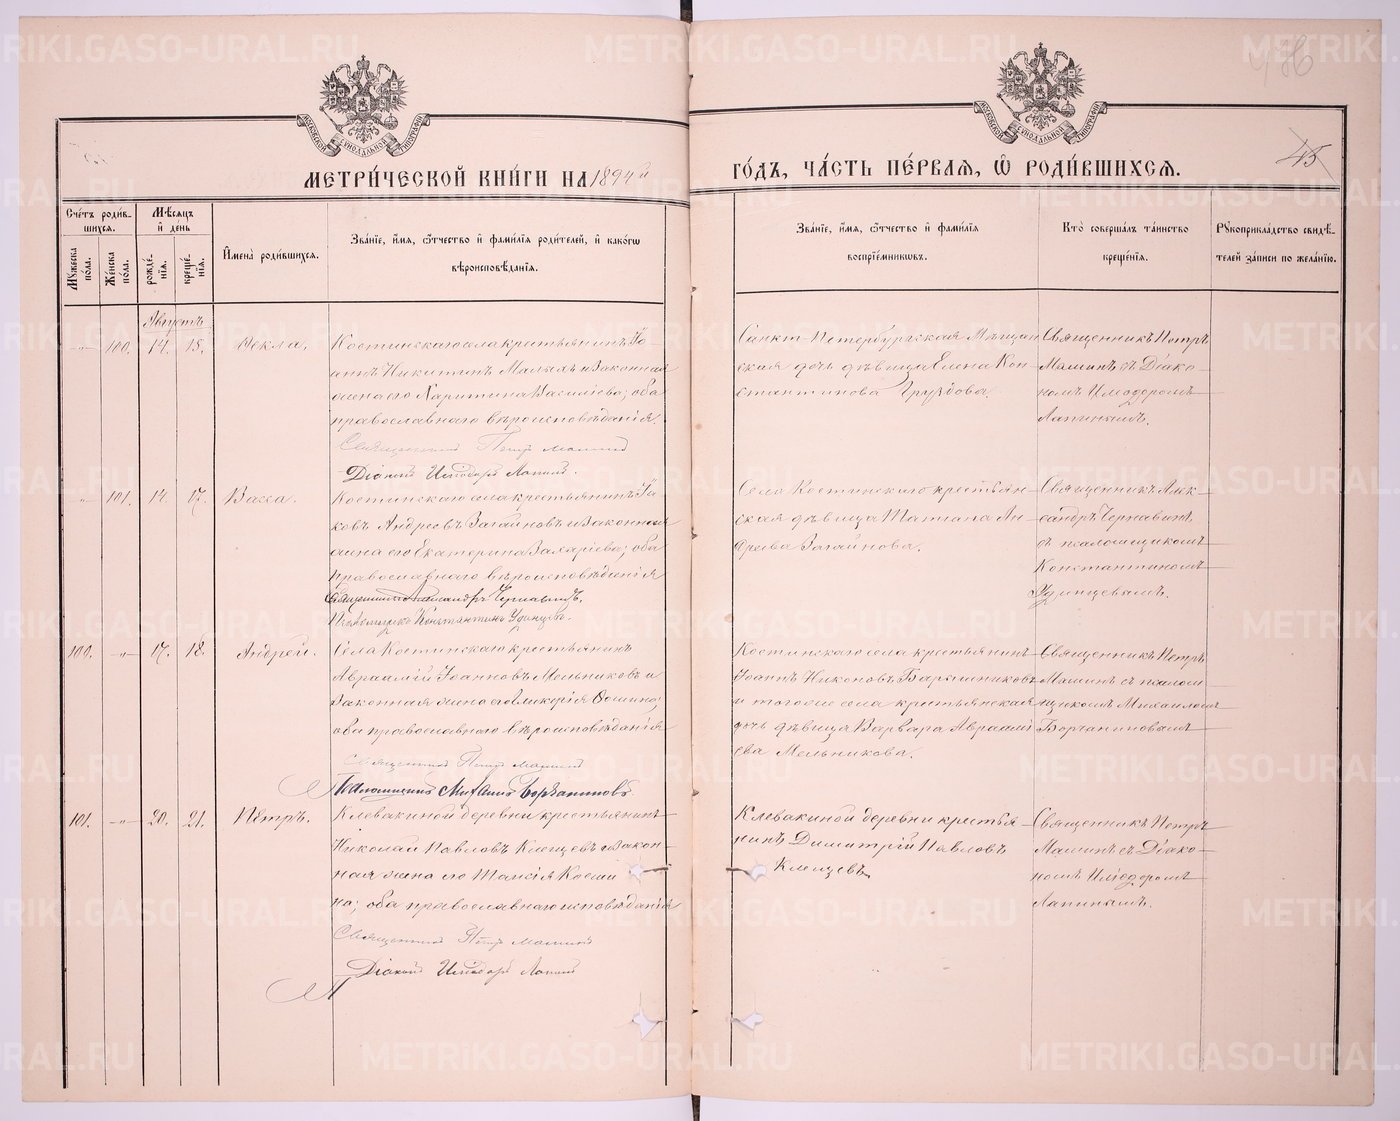 476
45
МЕТРИ́ЧЕСКОЙ КНИ́ГИ НА 1894й
ГО́ДЪ, ЧА́СТЬ ПЕ́РВАЯ, Ѡ РОДИ́ВШИХСЯ.
Сче́тъ роди́в-
шихся.
Му́жеска
по́ла.
Же́нска
по́ла.
Мѣ́сяцъ
и҆ де́нь
рожде́-
нїя.
креще́-
нїя.
И҆мена̀ роди́вшихся.
Зва́нїе, и҆́мя, ѻ҆́тчество и҆ фамі́лїя роди́телей, и҆ како́гѡ
вѣроисповѣ́данїя.
Зва́нїе, и҆́мя, ѻ҆́тчество и҆ фамі́лїя
воспрїе́мниковъ.
Кто̀ соверша́лъ та́инство
креще́нїя.
Рꙋкоприкла́дство свидѣ́-
телей за́писи по жела́нїю.
Августъ
-"- 100. 14. 15. Ѳекла.
Костинскаго села крестьянинъ Іо-
аннъ Никитинъ Малыхъ и законная
жена его Харитина Василіева; оба
православнаго вѣроисповѣданія.
Священникъ Петръ Маминъ
Діаконъ Иліодоръ Лапинъ.
Санкт-Петербургская Мѣщан
ская дочь дѣвица Елена Кон
стантинова Груздова.
Священникъ Петръ
Маминъ съ Діако-
номъ Иліодоромъ
Лапинымъ.
-"- 101. 14. 17. Васса.
Костинскаго села крестьянинъ Іа-
ковъ Андреевъ Загайновъ и законная
жена его Екатерина Захаріева; оба
православнаго вѣроисповѣданія
Священникъ Александръ Чернавинъ.
Псаломщикъ Константинъ Удинцевъ.
Села Костинскаго крестьян-
ская дѣвица Татіана Ан-
дреева Загайнова.
Священникъ Алек-
сандръ Чернавинъ
съ псаломщикомъ
Константиномъ
Удинцевымъ.
100. -"- 17. 18. Андрей.
Села Костинскаго крестьянинъ
Авраамій Іоанновъ Мельниковъ и
законная жена его Гликерія Ѳомина;
оба православнаго вѣроисповѣданія
Священникъ Петръ Маминъ
Псаломщикъ Михаилъ Борганиновъ
Костинскаго села крестьянинъ
Іоаннъ Никоновъ Барышниковъ
и тогоже села крестьянская
дочь дѣвица Варвара Авраамі
ева Мельникова.
Священникъ Петръ
Маминъ съ псалом
щикомъ Михаиломъ
Борганиновымъ
101. -"- 20. 21. Петръ.
Клевакиной деревни крестьянинъ
Николай Павловъ Клещевъ и закон-
ная жена его Таисія Косми
на; оба православнаго исповѣданія
Священникъ Петръ Маминъ
Діаконъ Иліодоръ Лапинъ
Клевакиной деревни крестья-
нинъ Димитрій Павловъ
Клещевъ
Священникъ Петръ
Маминъ съ Діако-
номъ Иліодоромъ
Лапинымъ.
METRIKI.GASO-URAL.RU